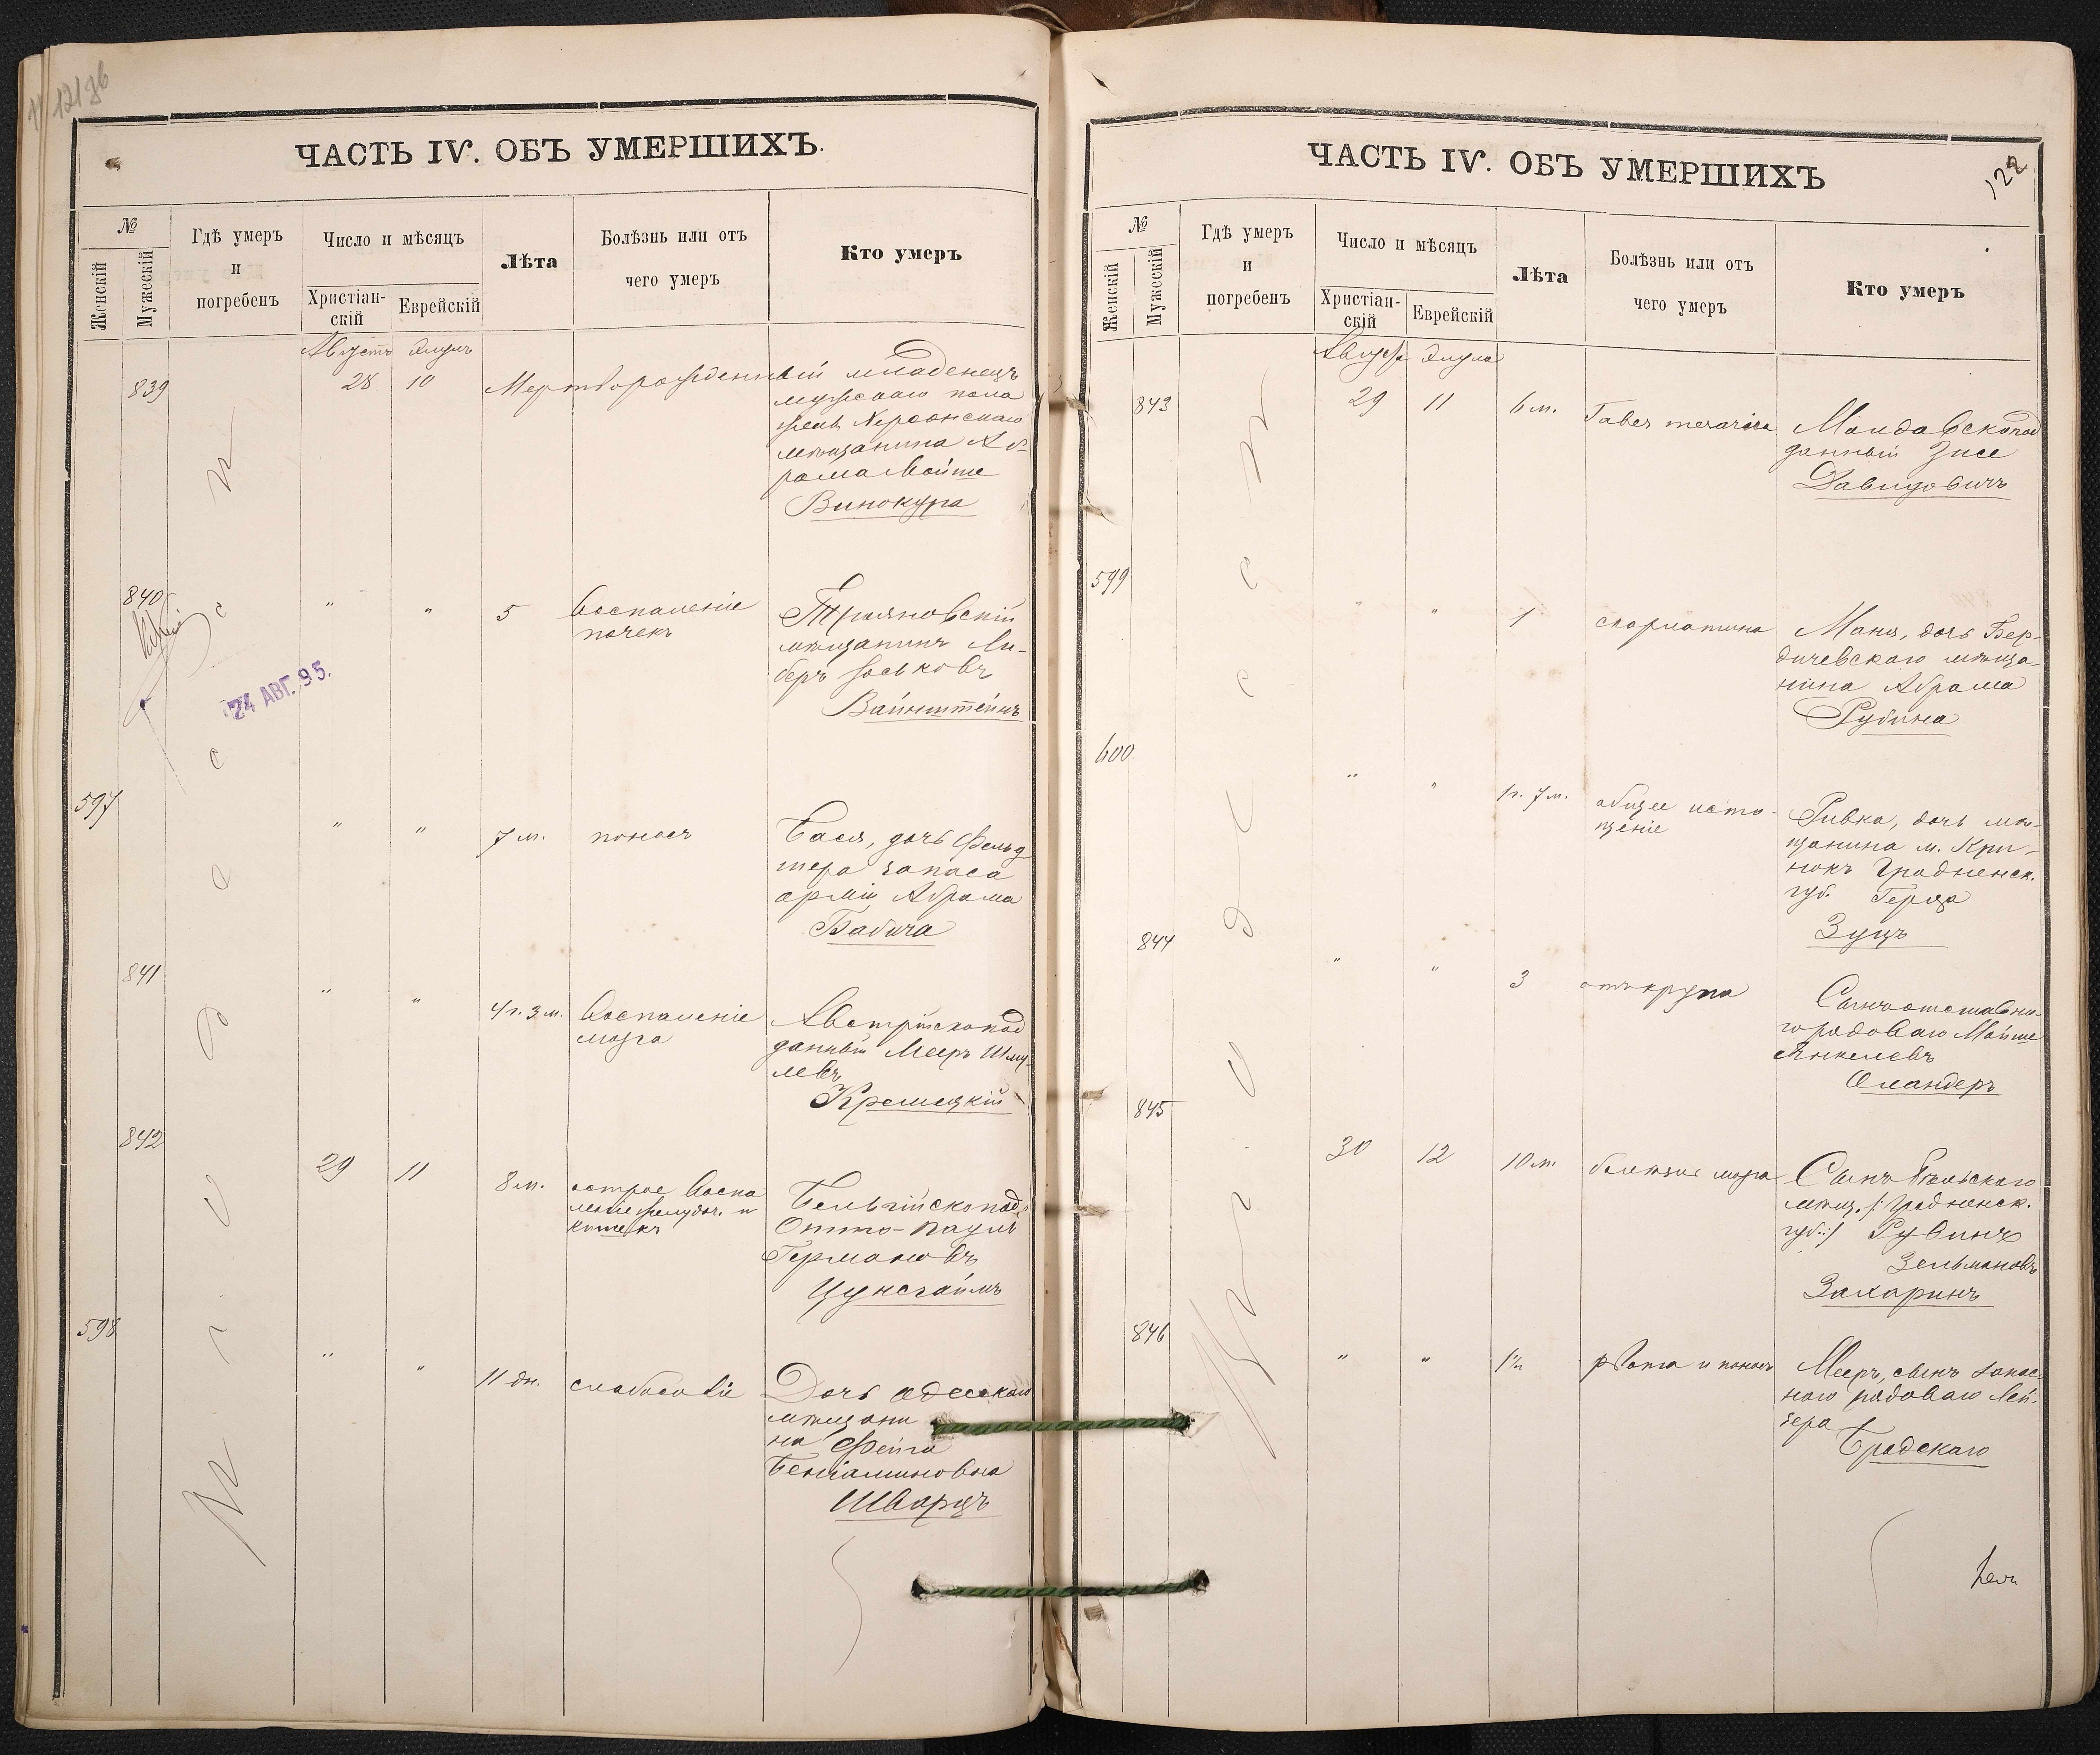 ЧАСТЬ IV. ОБЪ УМЕРШИХЪ.
№
Женскій
Мужескій
Гдѣ умеръ
и
погребенъ
Число и мѣсяцъ
Христіан-
скій
Еврейскій
Лѣта
Болѣзнь или отъ
чего умеръ
Кто умеръ
Августъ Элулъ
839 28 10 Мертворожденный младенецъ
мужескаго пола
Херсонскаго
мѣщанина Аб-
рама Мойше
Винокура
840 " " 5 Воспаленіе
почекъ
Трояновскій
мѣщанинъ Ли-
беръ Іоськовъ
Вайнштейнъ
24 АВГ. 95.
597 " " 7 м. поносъ
Бася, дочь Фельд-
шера запаса
арміи Абрама
Бабича
841 " " 4 г. 3 м. Воспаленіе
мозга
Австрійскопод
данный Мееръ Шму-
левъ
Кремецкій
842 29 11 8 м. острое воспа
леніе желудоч. и
кишекъ
Бельгійскопод.
Отто-Пауль
Германовъ
Цунсгаймъ
598 " " 11 дн. слабосилі
Дочь одесскаго
мѣщани
на Фейга
Беніаминовна
Шварцъ
ЧАСТЬ IV. ОБЪ УМЕРШИХЪ
122
№
Женскій
Мужескій
Гдѣ умеръ
и
погребенъ
Число и мѣсяцъ
Христіан-
скій
Еврейскій
Лѣта
Болѣзнь или отъ
чего умеръ
Кто умеръ
Августа Элула
843 29 11 6 м.
Молдавскопод
данный Зисе
Давидовичъ
599 " " 1 скарлатина
Маня, дочь Бер-
дичевскаго мѣща-
нина Абрама
Рубина
600 " " 1 г. 7 м. общее исто-
щеніе
Ривка, дочь мѣ-
щанина м. Кры-
нокъ Гродненск.
губ. Герца
Зуцъ
844 " " 3 отъ крупа
Сынъ отставн.
рядоваго Мойше
Янкелевъ
Оландеръ
845 30 12 10 м. болѣзнь мозга
Сынъ Бѣльскаго
мѣщ. /: Гродненск.
губ. :/ Рувинъ
Зельмановъ
Захаринъ
846 " " 1½ рвота и поносъ
Мееръ, сынъ запас-
наго рядоваго Лей-
зера
Бродскаго